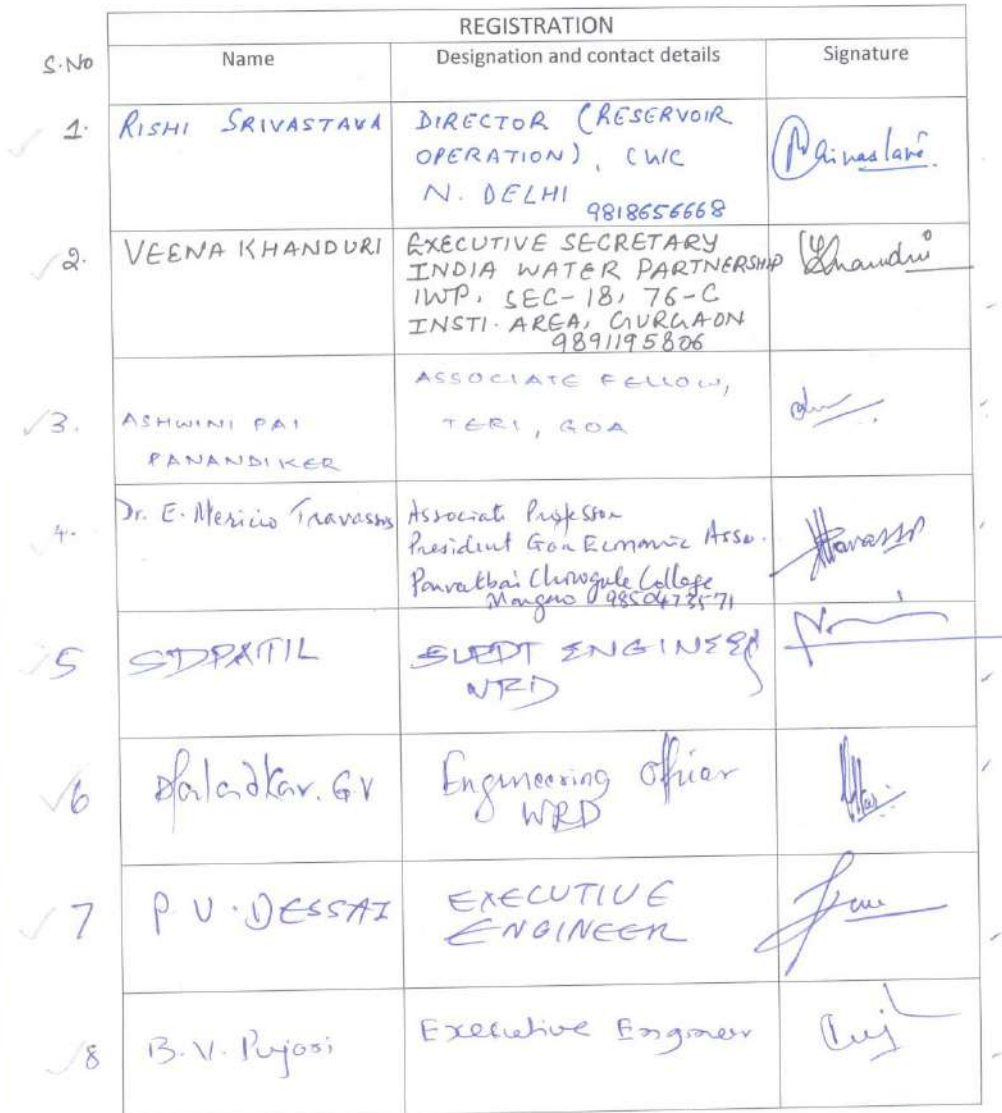 REGISTRATION
S.No Name Designation and contact details Signature
1. RISHI SRIVASTAVA DIRECTOR (RESERVOIR
OPERATION), CWC
N. DELHI
9818656668
2. VEENA KHANDURI EXECUTIVE SECRETARY
INDIA WATER PARTNERSHIP
IWP, SEC-18, 76-C
INSTI. AREA, GURGAON
9891195806
ASSOCIATE FELLOW,
3. ASHWINI PAI TERI, GOA
PANANDIKER
4. Dr. E. Mericio Travassos Associate Professor
President Goa Economic Asso.
Parvatbai Chowgule College
Margao 9850473571
5 SDPATIL SUPDT ENGINEER
WRD
6 GV Engineering Officer
WRD
7 P. V. DESSAI EXECUTIVE
ENGINEER
8 B. V. Pujari Executive Engineer